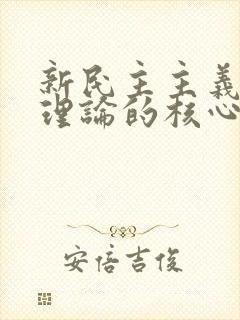 新民主主義
理論的核心
安倍吉俊